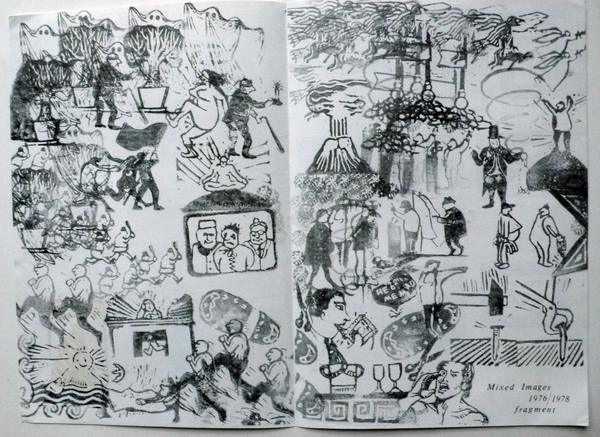 HELP
ME
Mixed Images
1976/1978
fragment